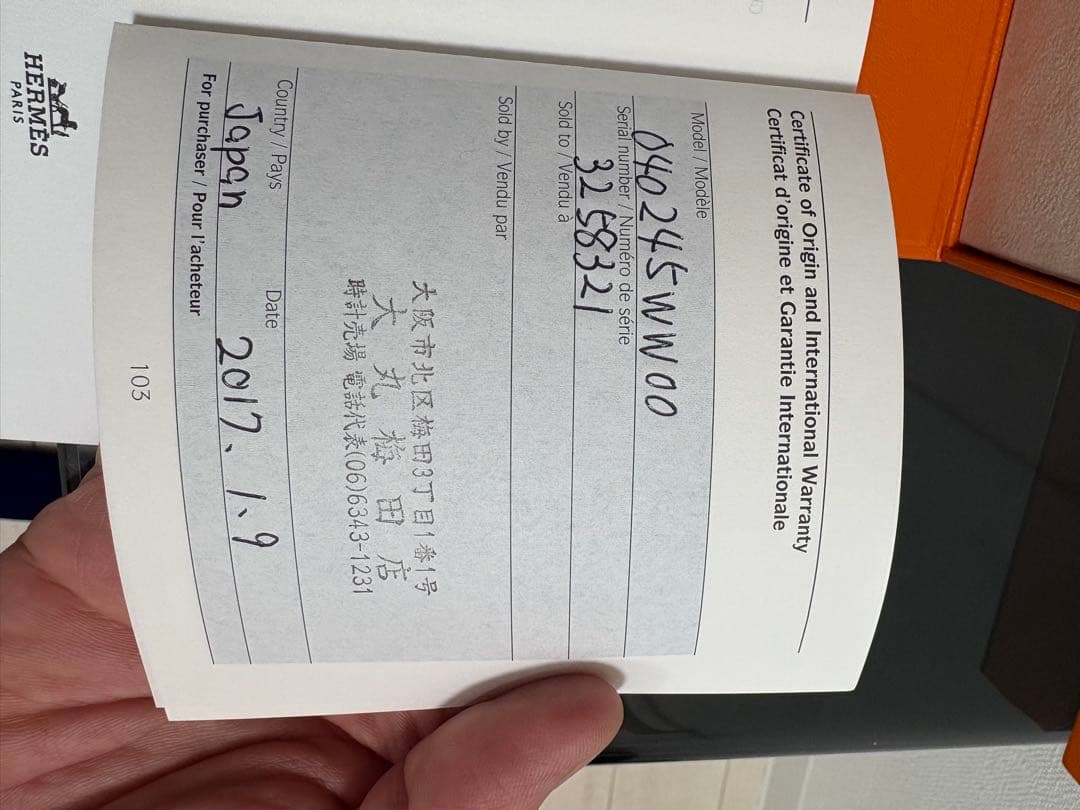 Certificate of Origin and International Warranty
Certificat d'origine et Garantie Internationale
Model / Modèle
040245WW00
Serial number / Numéro de série
3258321
Sold to / Vendu à
Sold by / Vendu par
大阪市北区梅田3丁目1番1号
大丸梅田店
時計売場 電話代表(06)6343-1231
Country / Pays
Date
Japan
2017、1、9
For purchaser / Pour l'acheteur
103
HERMÈS
PARIS